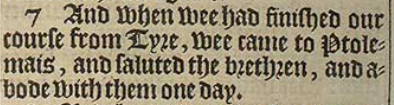 7 And when wee had finished our
course from Tyre, wee came to Ptole-
mais, and saluted the brethren, and a-
bode with them one day.